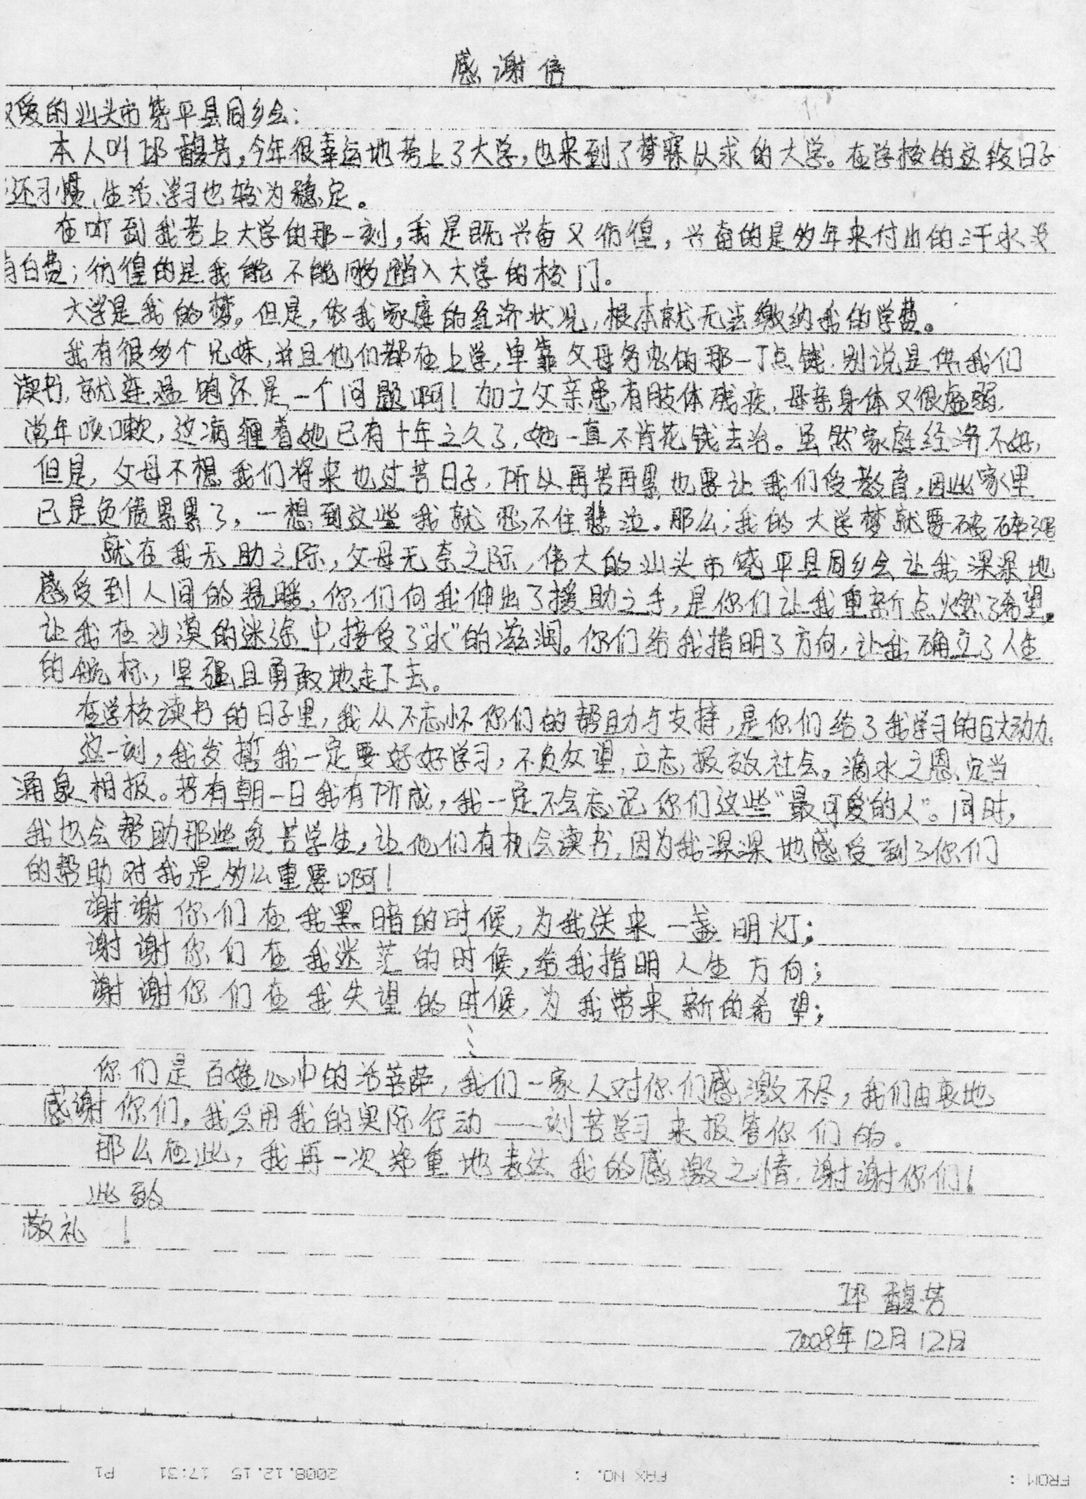 感谢信
爱的汕头市饶平县同乡会:
本人叫邱馥芳,今年很幸运地考上了大学,也来到了梦寐以求的大学。在学校的这段日子
还习惯,生活、学习也较为稳定。
在听到我考上大学的那一刻,我是既兴奋又彷徨,兴奋的是多年来付出的汗水没
有白费;彷徨的是我能不能够踏入大学的校门。
大学是我的梦。但是,依我家庭的经济状况,根本就无法缴纳我的学费。
我有很多个兄妹,并且他们都在上学,单靠父母务农的那一丁点钱.别说是供我们
读书,就连温饱还是一个问题啊!加之父亲患有肢体残疾,母亲身体又很虚弱,
常年咳嗽,这病缠着她已有十年之久了,她一直不肯花钱去治。虽然家庭经济不好,
但是,父母不想我们将来也过苦日子,所以再苦再累也要让我们受教育,因此家里
已是负债累累了,一想到这些我就忍不住悲泣。那么,我的大学梦就要破碎
就在我无助之际,父母无奈之际,伟大的汕头市饶平县同乡会让我深深地
感受到人间的温暖,你们向我伸出了援助之手,是你们让我重新点燃了希望。
让我在沙漠的迷途中,接受了"水"的滋润。你们给我指明了方向,让我确立了人生
的航标,坚强且勇敢地走下去。
在学校读书的日子里,我从不忘怀你们的帮助与支持,是你们给了我学习的巨大动力。
这一刻,我发誓我一定要好好学习,不负众望,立志报效社会。滴水之恩,定当
涌泉相报。若有朝一日我有所成,我一定不会忘记你们这些"最可爱的人"。同时,
我也会帮助那些贫苦学生,让他们有机会读书,因为我深深地感受到了你们
的帮助对我是多么重要啊!
谢谢你们在我黑暗的时候,为我送来一盏明灯;
谢谢你们在我迷茫的时候,给我指明人生方向;
谢谢你们在我失望的时候,为我带来新的希望;
⋮
你们是百姓心中的活菩萨,我们一家人对你们感激不尽,我们由衷地
感谢你们。我会用我的实际行动——刻苦学习来报答你们的。
那么在此,我再一次郑重地表达我的感激之情.谢谢你们!
此致
敬礼!
邱馥芳
2008年12月12日
FROM: FAX NO. : 2008.12.15 17:31 P1